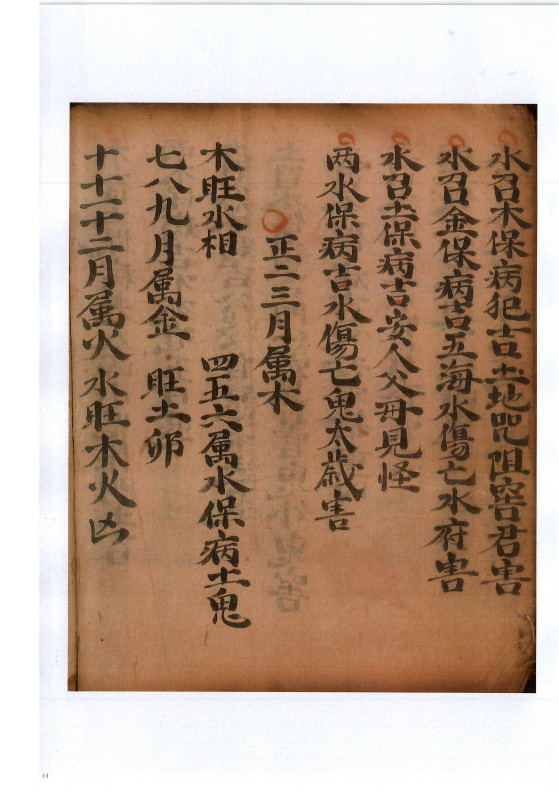 水召木保病犯吉土地咒阻害君害
水召金保病吉五海水傷亡水府害
水召土保病吉安人父母見怪
两水保病吉水傷亡鬼太歲害
正二三月属木
木旺水相　四五六属水保病土鬼
七八九月属金　旺土卯
十十一十二月属火水旺木火凶
44